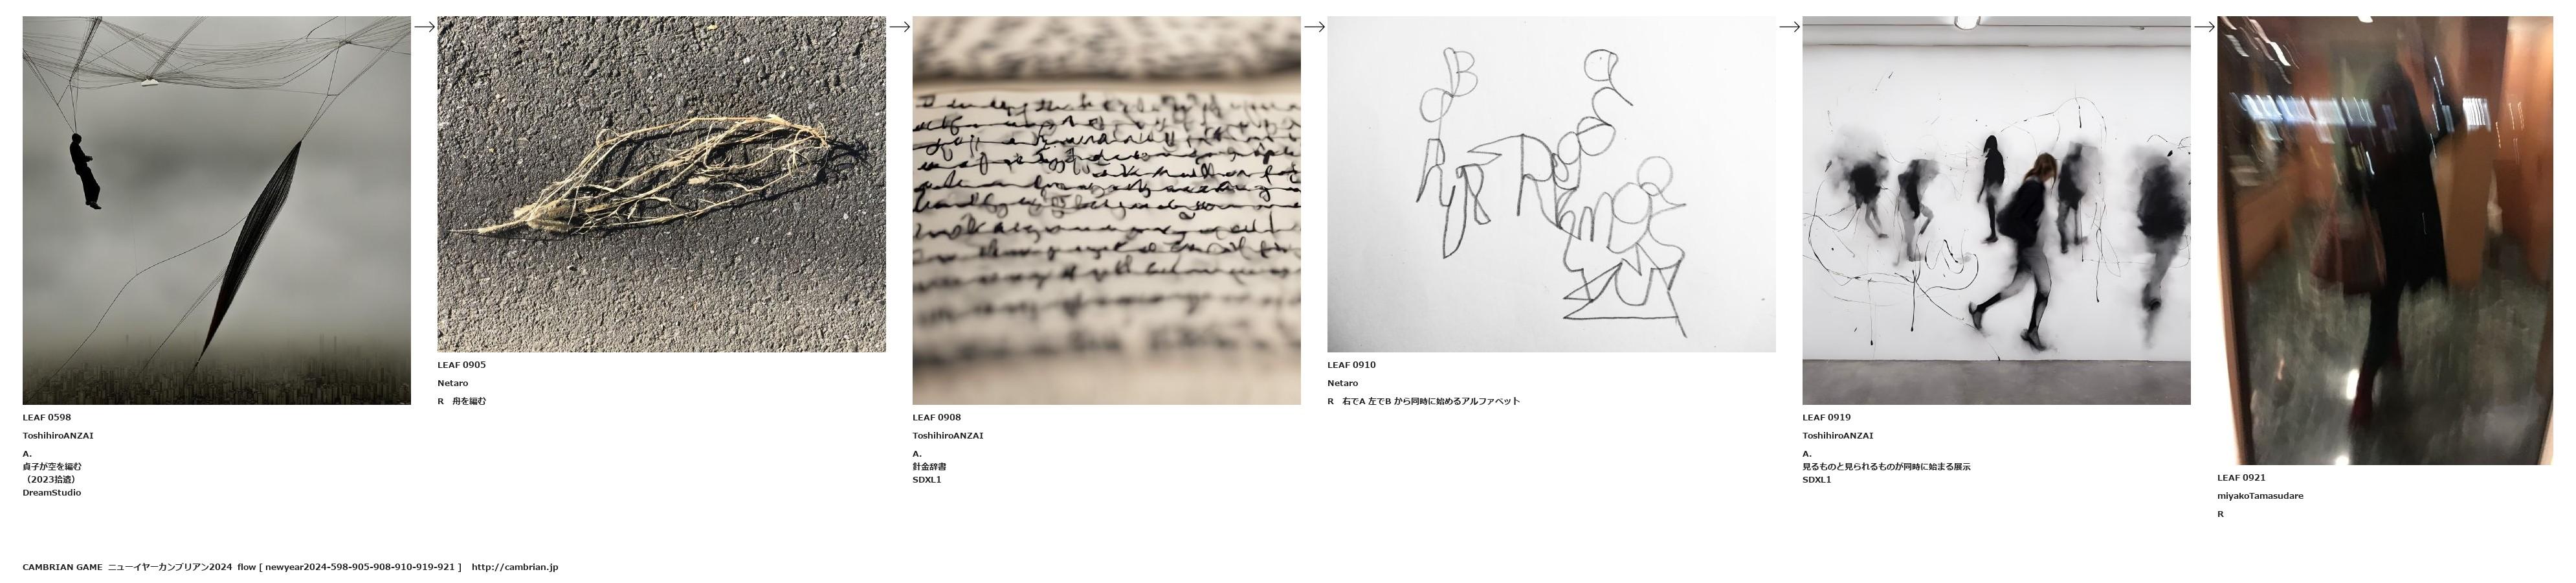 LEAF 0598
ToshihiroANZAI
A.
貞子が空を編む
（2023拾遺）
DreamStudio
LEAF 0905
Netaro
R　舟を編む
LEAF 0908
ToshihiroANZAI
A.
針金辞書
SDXL1
LEAF 0910
Netaro
R　右でA 左でB から同時に始めるアルファベット
LEAF 0919
ToshihiroANZAI
A.
見るものと見られるものが同時に始まる展示
SDXL1
LEAF 0921
miyakoTamasudare
R
CAMBRIAN GAME ニューイヤーカンブリアン2024 flow [ newyear2024-598-905-908-910-919-921 ] http://cambrian.jp